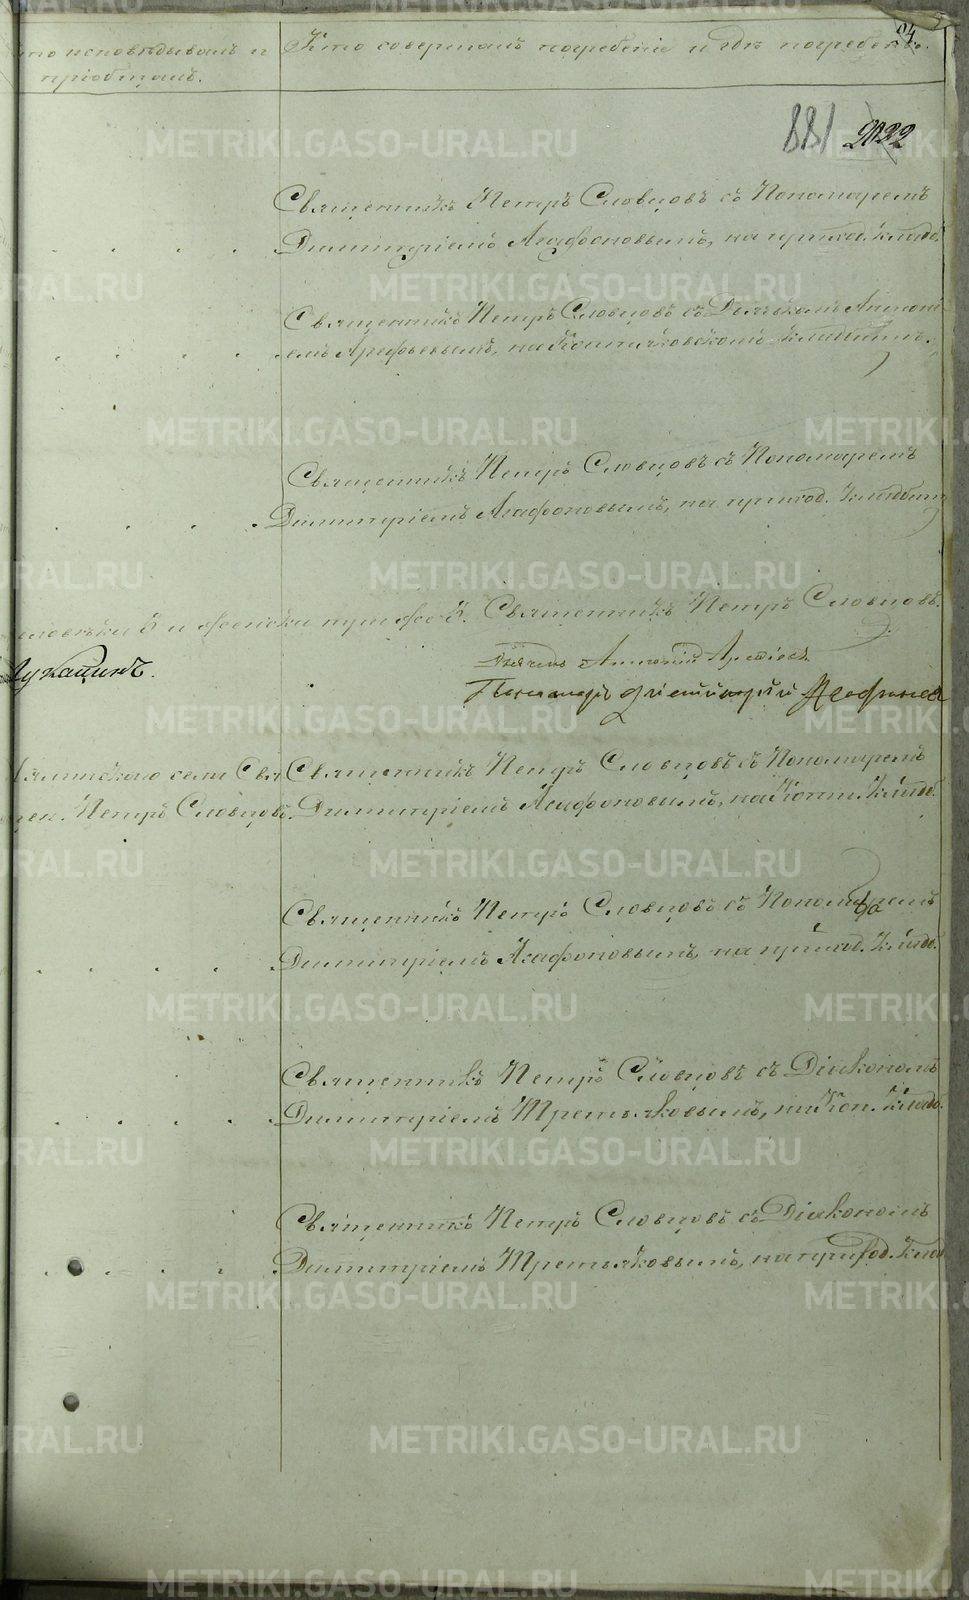 94
то исповѣдывалъ и
пріобщалъ.
Кто совершалъ погребеніе и гдѣ погребены.
881 2032
Священникъ Петръ Словцовъ съ Пономаремъ
Димитріемъ Агафоновымъ, на прихо. кладб.
Священникъ Петръ Словцовъ съ Дьячкомъ Антоні-
емъ Арефьевымъ, на кладбищѣ.
Священникъ Петръ Словцовъ съ Пономаремъ
Димитріемъ Агафоновымъ, на приход. кладбищ
и женска пула Священникъ Петръ Словцовъ.
Лукашинъ.
Дьячекъ Антоній Арефьевъ
Пономарь Димитрій Агафоновъ
села Свя-
щен. Петръ Словцовъ.
Священникъ Петръ Словцовъ съ Пономаремъ
Димитріемъ Агафоновымъ, на кладб.
Священникъ Петръ Словцовъ съ Пономаремъ
Димитріемъ Агафоновымъ, на приход. кладб.
Священникъ Петръ Словцовъ съ Діакономъ
Димитріемъ Третьяковымъ, на кладб.
Священникъ Петръ Словцовъ съ Діакономъ
Димитріемъ Третьяковымъ, на приход. клад
METRIKI.GASO-URAL.RU